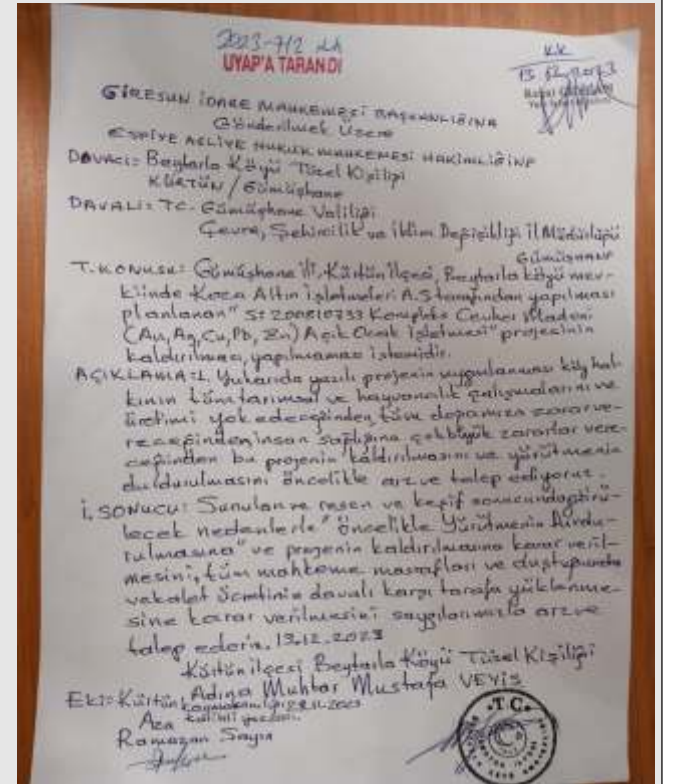 2023-712
UYAP'A TARANDI
KK
13.12.2023
GİRESUN İDARE MAHKEMESİ BAŞKANLIĞINA
Gönderilmek Üzere
ESPİYE ASLİYE HUKUK MAHKEMESİ HAKİMLİĞİNE
DAVACI: Beytarla Köyü Tüzel Kişiliği
KÜRTÜN / Gümüşhane
DAVALI: TC. Gümüşhane Valiliği
Çevre, Şehircilik ve İklim Değişikliği İl Müdürlüğü
GÜMÜŞHANE
T. KONUSU: Gümüşhane İli, Kürtün İlçesi, Beytarla köyü mev-
kiinde Koza Altın İşletmeleri A.Ş tarafından yapılması
planlanan "S: 200810733 Kompleks Cevher Madeni
(Au, Ag, Cu, Pb, Zn) Açık Ocak İşletmesi" projesinin
kaldırılması, yapılmaması istemidir.
AÇIKLAMA: 1. Yukarıda yazılı projenin uygulanması köy hal-
kının tüm tarımsal ve hayvancılık çalışmalarını ve
üretimi yok edeceğinden, tüm doğamıza zarar ve-
receğinden, insan sağlığına çok büyük zararlar vere-
ceğinden bu projenin kaldırılmasını ve yürütmenin
durdurulmasını öncelikle arz ve talep ediyoruz.
İ. SONUCU: Sunulan ve resen ve keşif sonucunda görü-
lecek nedenlerle "öncelikle Yürütmenin durdu-
rulmasına" ve projenin kaldırılmasına karar veril-
mesini, tüm mahkeme masrafları ve duştuğunda
vekalet ücretinin davalı karşı tarafa yüklenme-
sine karar verilmesini saygılarımızla arz ve
talep ederim. 13.12.2023
Kürtün ilçesi Beytarla Köyü Tüzel Kişiliği
Adına Muhtar Mustafa VEYİS
Eki: Kürtün Kaymakamlığı 28.11.2023
tarihli yazısı.
Aza
Ramazan Sayın
T.C.